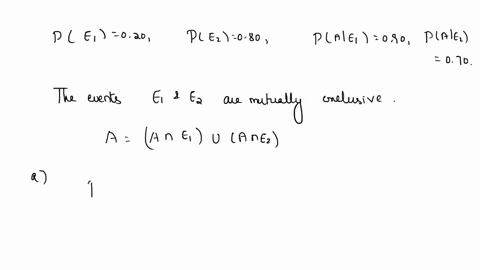 P( E₁) =0.20, P(E₂) =0.80, P(A|E₁) =0.90, P(A|E₂)
= 0.70.
The events E₁ & E₂ are mutually exclusive.
A = (A ∩ E₁) ∪ (A ∩ E₂)
a)